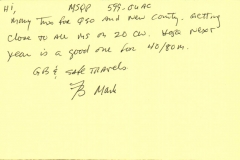 Hi, MSPP 599-OUAC
Many Tnx for QSO and New County. Getting
close to all MS on 20 CW. Hope Next
year is a good one for 40/80m.
GB & Safe Travels
73 Mark